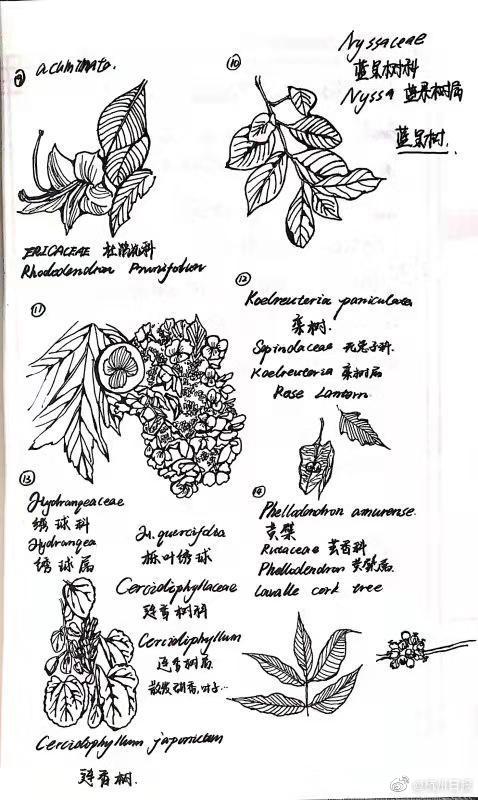 ⑨ acuminata.
ERICACEAE 杜鹃花科
Rhododendron Prunifolium
⑩
Nyssaceae
蓝果树科
Nyssa 蓝果树属
蓝果树.
⑪
⑫
Koelreuteria paniculata
栾树.
Sapindaceae 无患子科.
Koelreuteria 栾树属
Rose Lantern
⑬
Hydrangeaceae
绣球科
Hydrangea
绣球属
H. quercifolia
栎叶绣球
Cercidiphyllaceae
连香树科
Cercidiphyllum
连香树属
散发甜香,叶子…
Cercidiphyllum japonicum
连香树.
⑭
Phellodendron amurense.
黄檗
Rutaceae 芸香科
Phellodendron 黄檗属.
Lavalle cork tree
@杭州日报